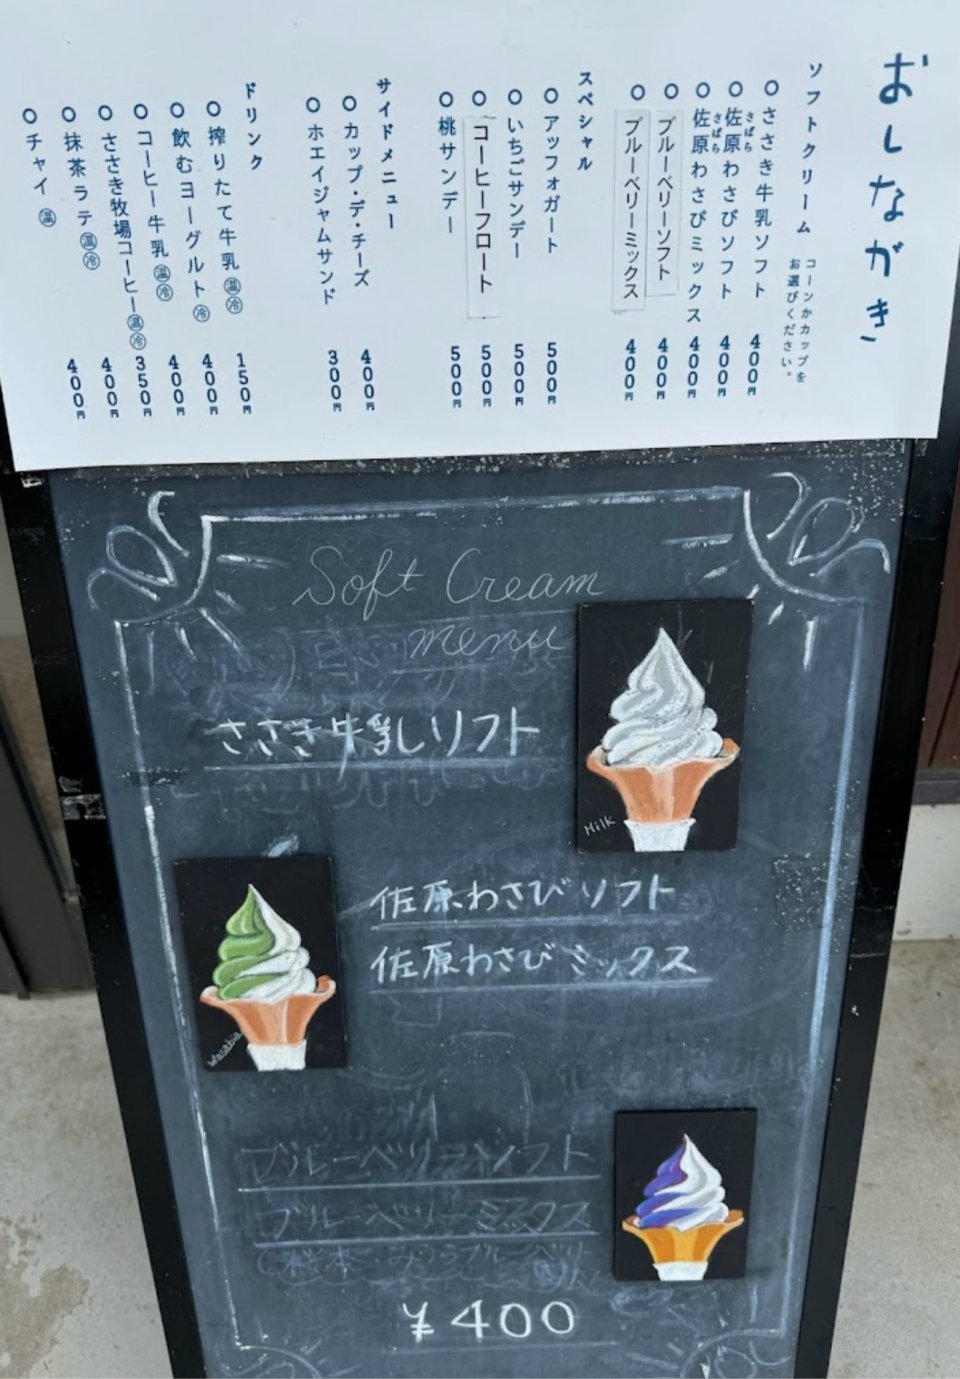 おしながき
ソフトクリーム コーンかカップを
お選びください。
○ささき牛乳ソフト 400円
○佐原わさびソフト 400円
さばら
○佐原わさびミックス 400円
さばら
○ブルーベリーソフト 400円
○ブルーベリーミックス 400円
スペシャル
○アッフォガート 500円
○いちごサンデー 500円
○コーヒーフロート 500円
○桃サンデー 500円
サイドメニュー
○カップ・デ・チーズ 400円
○ホエイジャムサンド 300円
ドリンク
○搾りたて牛乳 温 冷 150円
○飲むヨーグルト 冷 400円
○コーヒー牛乳 温 冷 400円
○ささき牧場コーヒー 温 冷 350円
○抹茶ラテ 温 冷 400円
○チャイ 温 400円
Soft Cream
menu
ささき牛乳ソフト
Milk
佐原わさびソフト
佐原わさびミックス
Wasabia
ブルーベリーソフト
ブルーベリーミックス
¥400